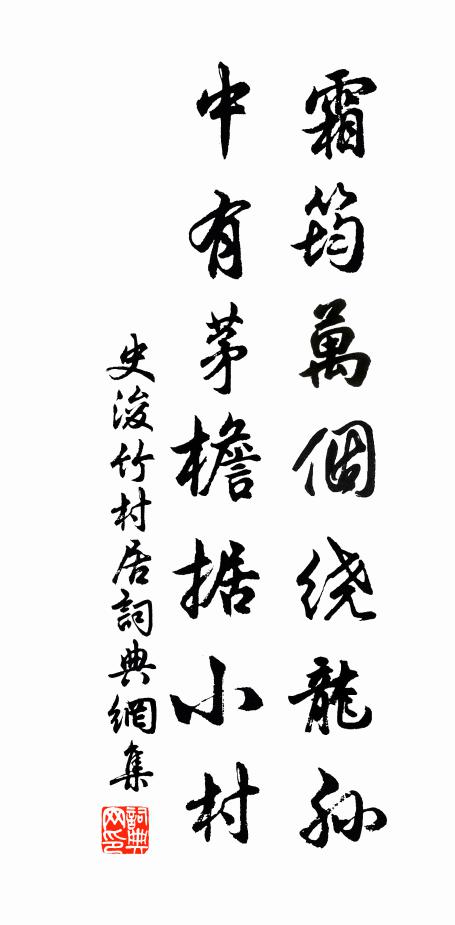 霜筠萬個绕龍孫
中有茅檐据小村
史浚竹村居詞典網集
詞典网印